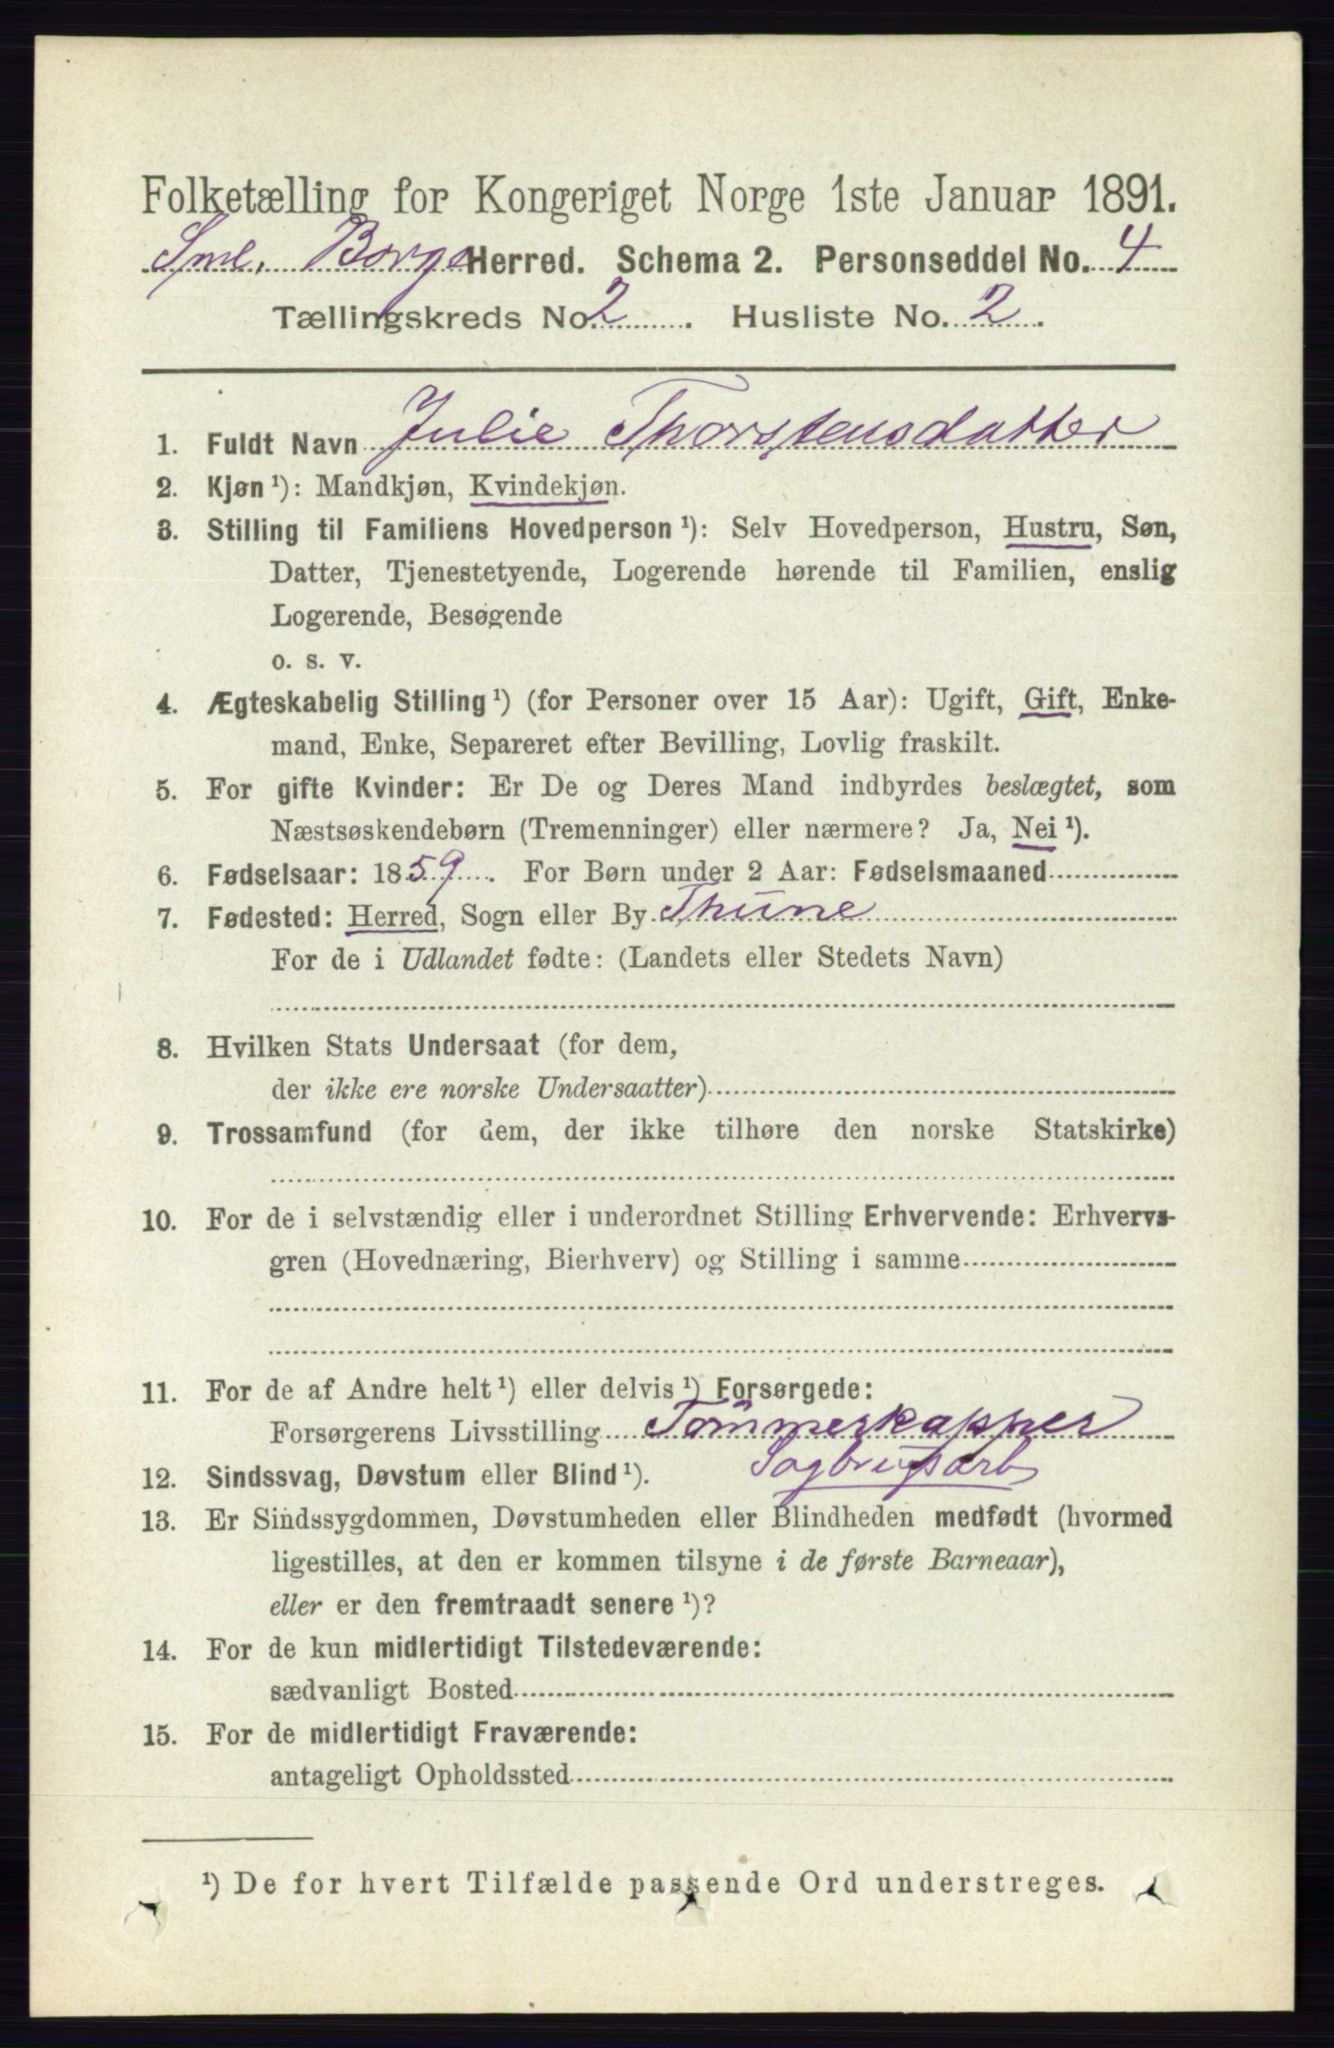 Folketælling for Kongeriget Norge 1ste Januar 1891.
Sml. Borge Herred. Schema 2. Personseddel No. 4
Tællingskreds No. 2. Husliste No. 2.
1. Fuldt Navn Julie Thorstensdatter
2. Kjøn ¹): Mandkjøn, Kvindekjøn.
3. Stilling til Familiens Hovedperson ¹): Selv Hovedperson, Hustru, Søn,
Datter, Tjenestetyende, Logerende hørende til Familien, enslig
Logerende, Besøgende
o. s. v.
4. Ægteskabelig Stilling ¹) (for Personer over 15 Aar): Ugift, Gift, Enke-
mand, Enke, Separeret efter Bevilling, Lovlig fraskilt.
5. For gifte Kvinder: Er De og Deres Mand indbyrdes beslægtet, som
Næstsøskendebørn (Tremenninger) eller nærmere? Ja, Nei ¹).
6. Fødselsaar: 1859. For Børn under 2 Aar: Fødselsmaaned
7. Fødested: Herred, Sogn eller By Thune
For de i Udlandet fødte: (Landets eller Stedets Navn)
8. Hvilken Stats Undersaat (for dem,
der ikke ere norske Undersaatter)
9. Trossamfund (for dem, der ikke tilhøre den norske Statskirke)
10. For de i selvstændig eller i underordnet Stilling Erhvervende: Erhvervs-
gren (Hovednæring, Bierhverv) og Stilling i samme
11. For de af Andre helt ¹) eller delvis ¹) Forsørgede:
Forsørgerens Livsstilling Tømmerkapper
Sagbrugsarb
12. Sindssvag, Døvstum eller Blind ¹).
13. Er Sindssygdommen, Døvstumheden eller Blindheden medfødt (hvormed
ligestilles, at den er kommen tilsyne i de første Barneaar),
eller er den fremtraadt senere ¹)?
14. For de kun midlertidigt Tilstedeværende:
sædvanligt Bosted
15. For de midlertidigt Fraværende:
antageligt Opholdssted
¹) De for hvert Tilfælde passende Ord understreges.